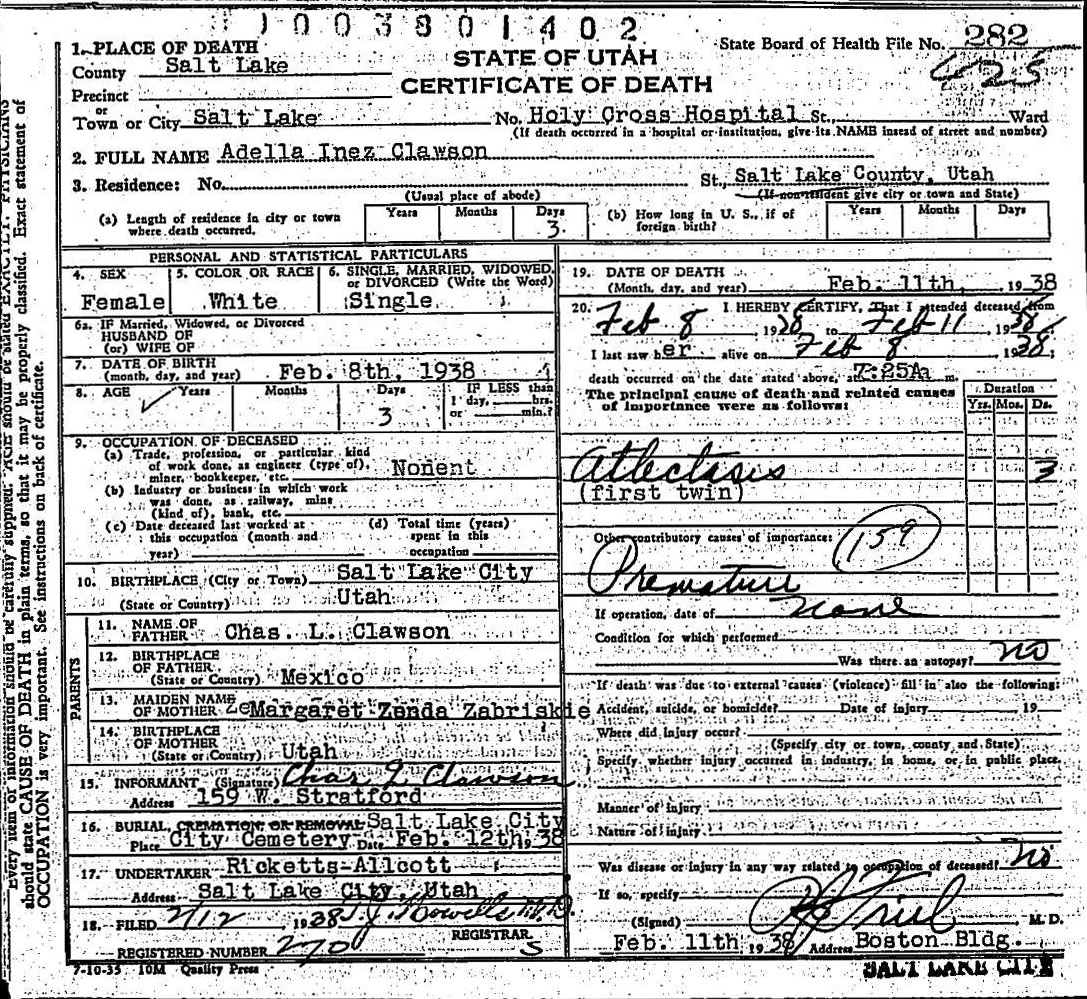 1003801402
1. PLACE OF DEATH
County Salt Lake
STATE OF UTAH
State Board of Health File No. 282
CERTIFICATE OF DEATH
425
Precinct
or
Town or City Salt Lake No. Holy Cross Hospital St., Ward
(If death occurred in a hospital or institution, give its NAME insead of street and number)
2. FULL NAME Adella Inez Clawson
3. Residence: No. St., Salt Lake County, Utah
(Usual place of abode) (If non-resident give city or town and State)
(a) Length of residence in city or town where death occurred. Years Months Days 3.
(b) How long in U. S., if of foreign birth? Years Months Days
PERSONAL AND STATISTICAL PARTICULARS
4. SEX Female
5. COLOR OR RACE White
6. SINGLE, MARRIED, WIDOWED, or DIVORCED (Write the Word) Single
6a. IF Married, Widowed, or Divorced
HUSBAND OF
(or) WIFE OF
7. DATE OF BIRTH
(month, day, and year) Feb. 8th, 1938
8. AGE Years Months Days 3
IF LESS than
1 day, hrs.
or min.?
9. OCCUPATION OF DECEASED
(a) Trade, profession, or particular kind
of work done, as engineer (type of),
miner, bookkeeper, etc. Nonent
(b) Industry or business in which work
was done, as railway, mine
(kind of), bank, etc.
(c) Date deceased last worked at
this occupation (month and
year)
(d) Total time (years)
spent in this
occupation
10. BIRTHPLACE (City or Town) Salt Lake City
(State or Country) Utah
PARENTS
11. NAME OF
FATHER Chas. L. Clawson
12. BIRTHPLACE
OF FATHER
(State or Country) Mexico
13. MAIDEN NAME
OF MOTHER Ze Margaret Zenda Zabriskie
14. BIRTHPLACE
OF MOTHER
(State or Country) Utah
15. INFORMANT (Signature) Chas L Clawson
Address 159 W. Stratford
16. BURIAL, CREMATION, OR REMOVAL Salt Lake City
Place City Cemetery Date Feb. 12th, 1938
17. UNDERTAKER Ricketts-Allcott
Address Salt Lake City, Utah
18. FILED 2/12 1938 T. J. Howells M.D.
REGISTRAR
REGISTERED NUMBER 270 S
7-10-35 10M Quality Press
19. DATE OF DEATH
(Month, day, and year) Feb. 11th, 1938
20. I HEREBY CERTIFY, That I attended deceased from
Feb 8 1938 to Feb 11 1938
I last saw her alive on Feb 8 1938;
death occurred on the date stated above, at 7:25A m.
The principal cause of death and related causes
of importance were as follows:
Duration
Yrs. Mos. Ds.
Atlectasis 3
(first twin)
Other contributory causes of importance: 159
Premature
If operation, date of none
Condition for which performed
Was there an autopsy? no
If death was due to external causes (violence) fill in also the following:
Accident, suicide, or homicide? Date of injury 19
Where did injury occur?
(Specify city or town, county and State)
Specify whether injury occurred in industry, in home, or in public place.
Manner of injury
Nature of injury
Was disease or injury in any way related to occupation of deceased? no
If so, specify
(Signed) M. D.
Feb. 11th 1938 Address Boston Bldg.
SALT LAKE CITY
should state CAUSE OF DEATH in plain terms, so that it may be properly classified. Exact statement of
OCCUPATION is very important. See instructions on back of certificate.